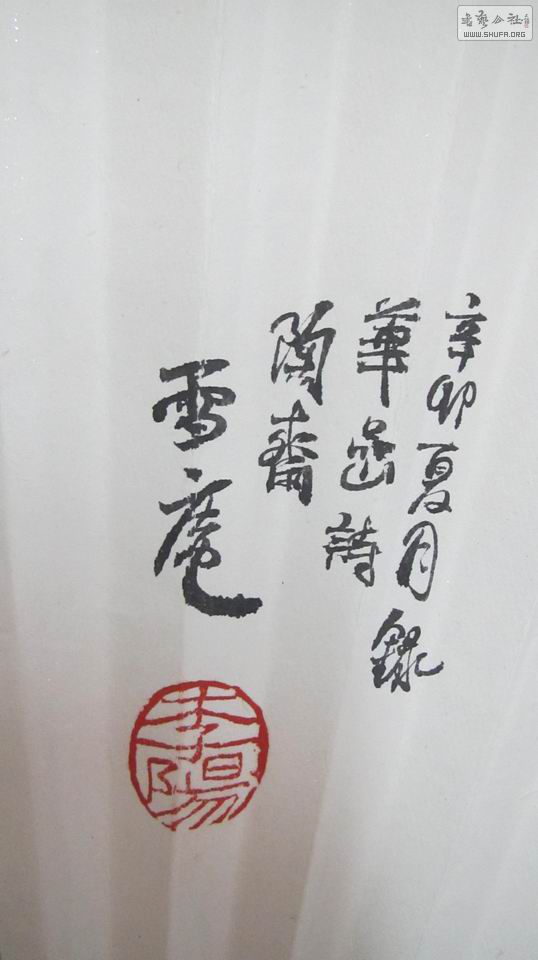 辛卯夏月錄
華嵒詩
陶齋
雪庵
李陽
書藝公社
WWW.SHUFA.ORG